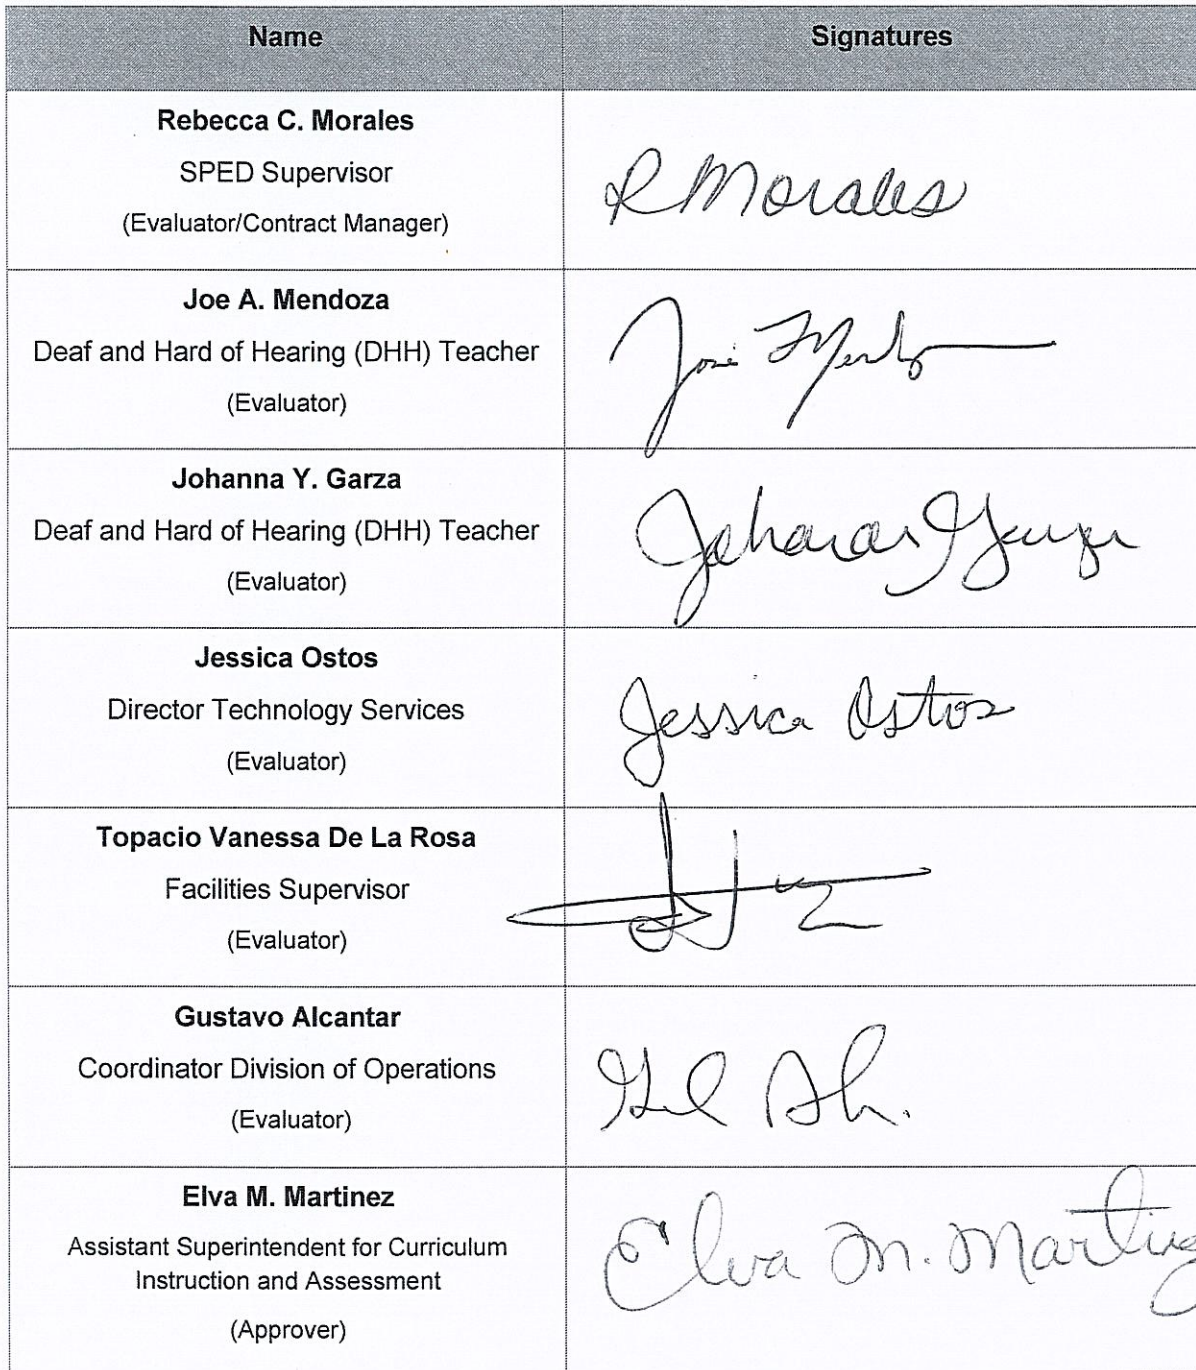 Name Signatures
Rebecca C. Morales
SPED Supervisor
(Evaluator/Contract Manager)
R Morales
Joe A. Mendoza
Deaf and Hard of Hearing (DHH) Teacher
(Evaluator)
Johanna Y. Garza
Deaf and Hard of Hearing (DHH) Teacher
(Evaluator)
Jessica Ostos
Director Technology Services
(Evaluator)
Jessica Ostos
Topacio Vanessa De La Rosa
Facilities Supervisor
(Evaluator)
Gustavo Alcantar
Coordinator Division of Operations
(Evaluator)
Elva M. Martinez
Assistant Superintendent for Curriculum
Instruction and Assessment
(Approver)
Elva M.